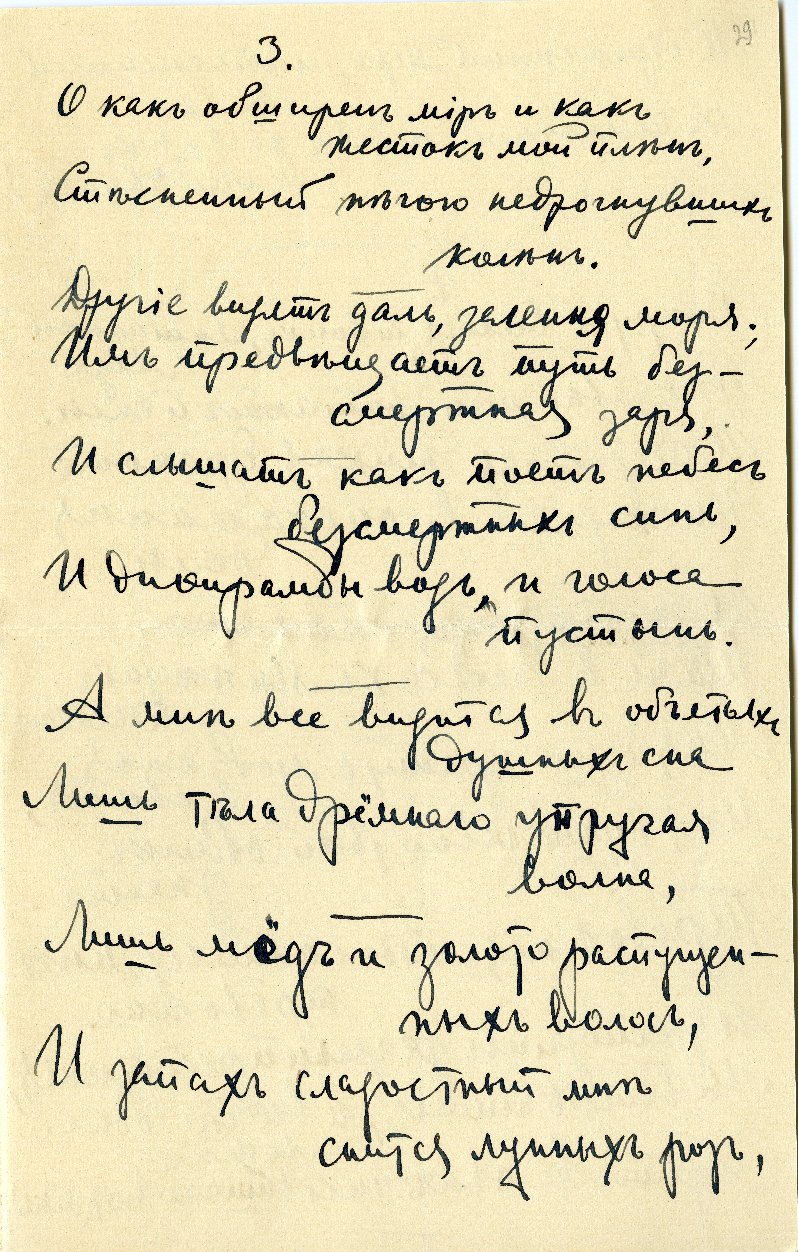 29
3.
О какъ обширенъ мiръ и какъ
жестокъ мой плѣнъ,
Стѣсненный нѣгою недрогнувшихъ
колѣнъ.
Другiе видятъ даль, зелення моря;
Имъ предвѣщаетъ путь без-
смертная заря,
И слышатъ какъ поетъ небесъ
безсмертныхъ синь,
И диѳирамбы водъ, и голоса
пустынь.
А мнѣ все видится въ объятьяхъ
душныхъ сна
Лишь тѣла дрёмнаго упругая
волна,
Лишь мёдъ и золото распущен-
ныхъ волосъ,
И запахъ сладостный мнѣ
снится лунныхъ розъ,